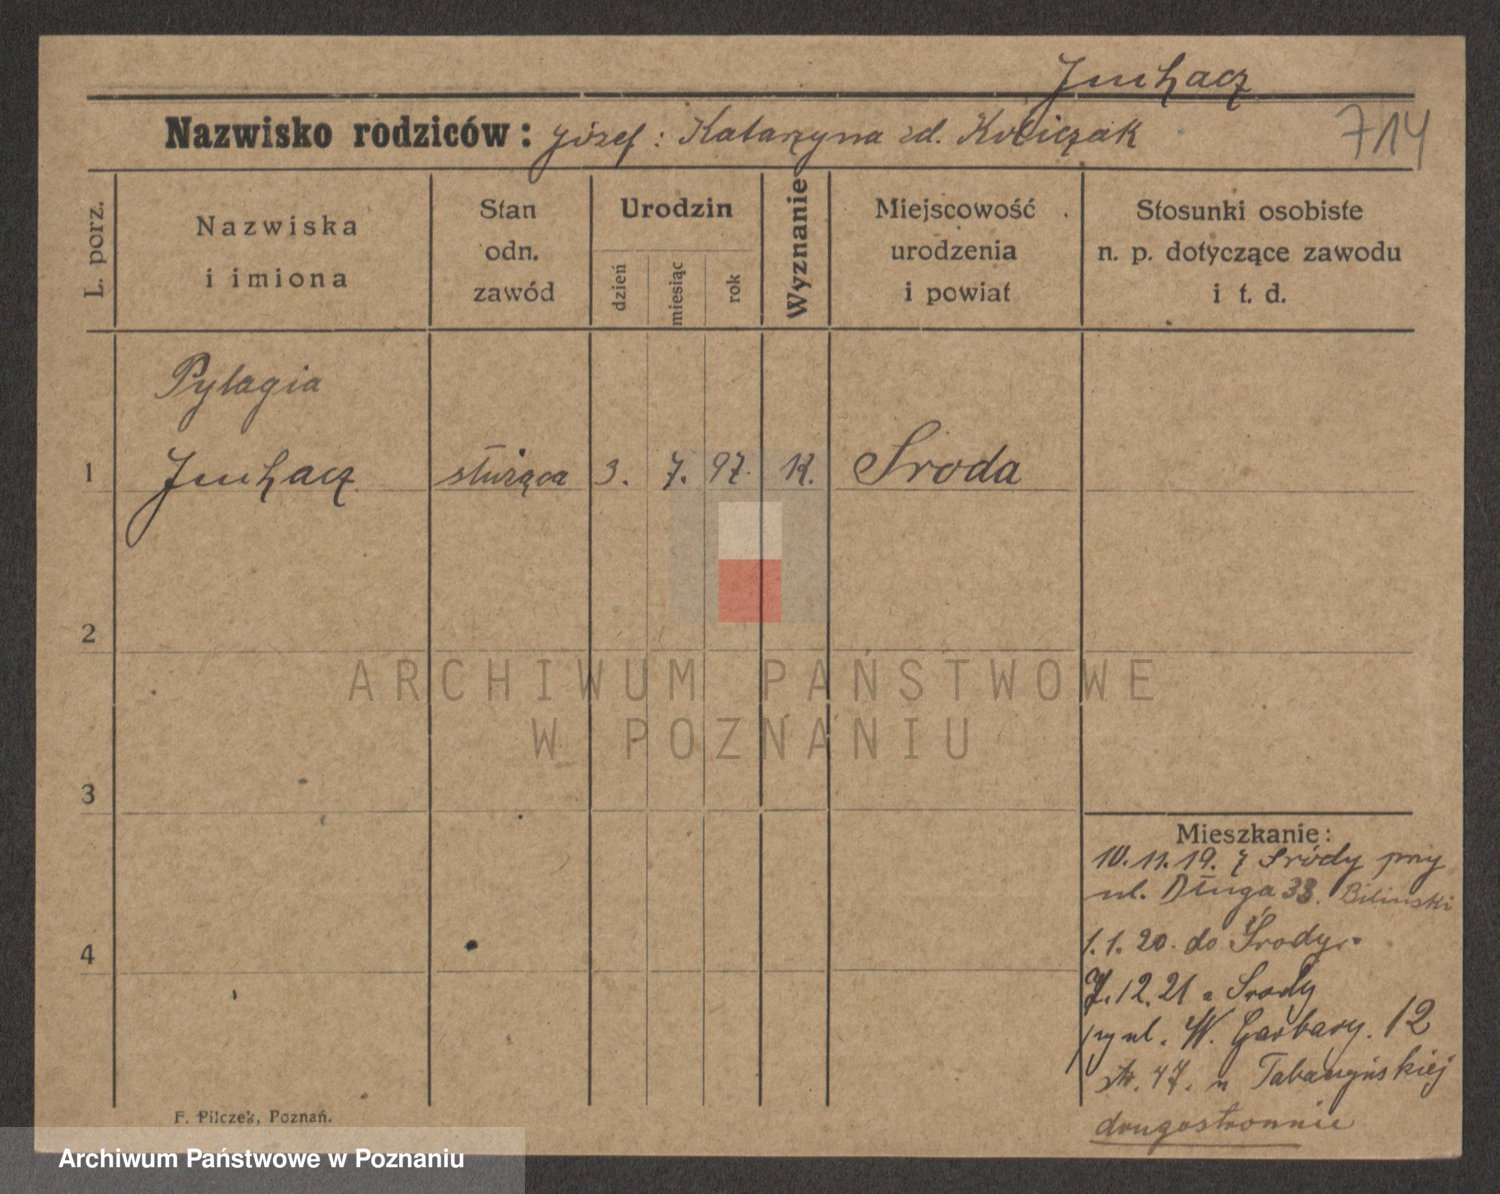 Juchacz
Nazwisko rodziców: Józef : Katarzyna zd.
714
L. porz.
Nazwiska
i imiona
Stan
odn.
zawód
Urodzin
dzień
miesiąc
rok
Wyznanie
Miejscowość
urodzenia
i powiat
Stosunki osobiste
n. p. dotyczące zawodu
i t. d.
Pylagia
1 Juchacz służąca 3. 7. 97. K. Środa
2
ARCHIWUM PAŃSTWOWE
W POZNANIU
3
Mieszkanie:
10.11.19. z Środy przy
ul. Długa 33. Biliński
4
1.1.20. do Środy.
7.12.21 z Środy
przy ul. W. Garbary. 12
str. 47. u
drugostronnie
F. Pilczek, Poznań.
Archiwum Państwowe w Poznaniu